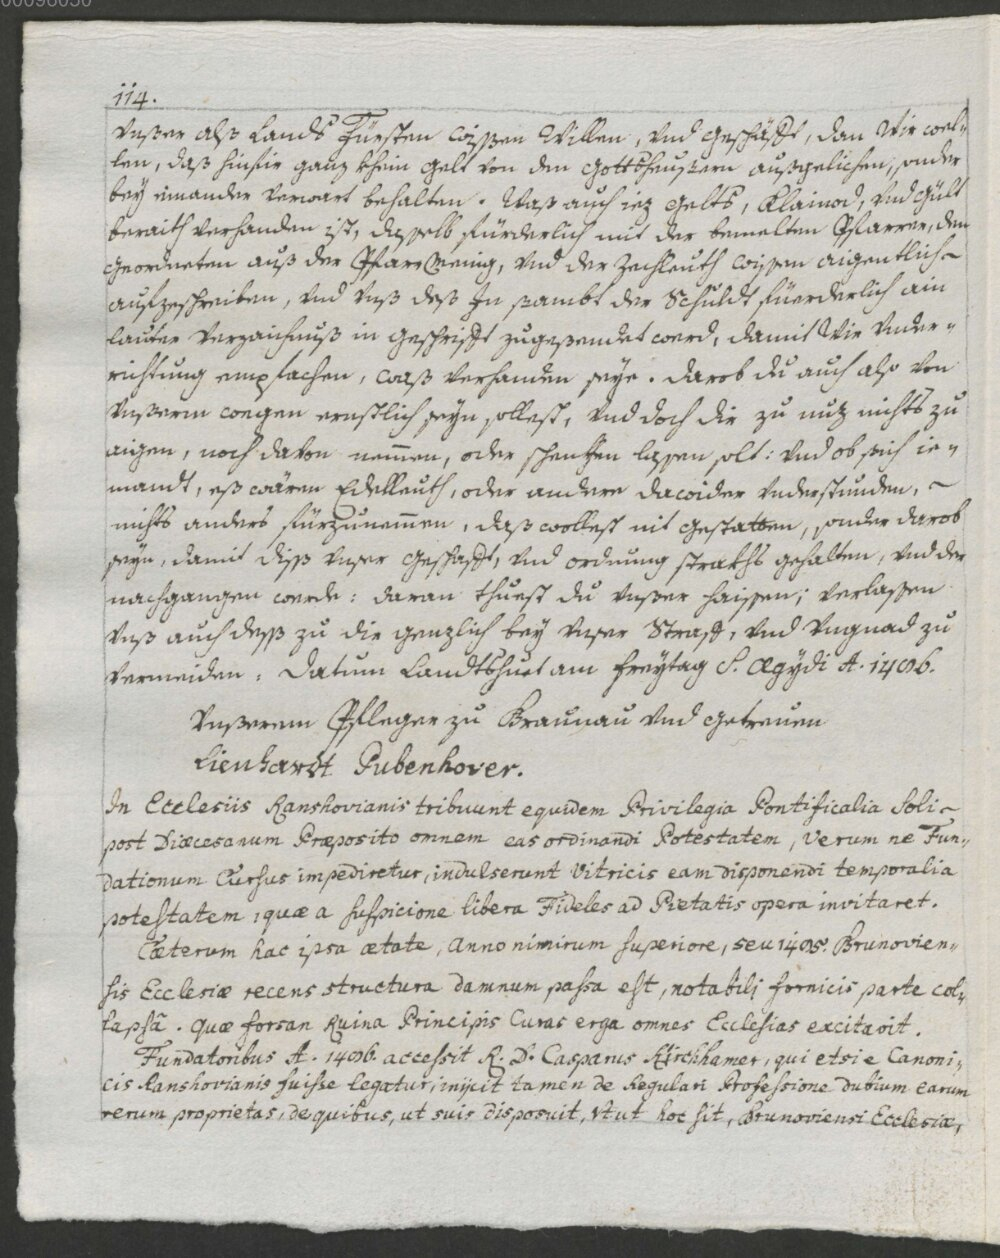 00096030
114.
Vnßer alß Lands Fürsten wißen Willen, vnd geschäfft, dan Wir wel„
len, daß hinfür ganz khein gelt von den Gottsheußern außgelichen, sonder
bey einander verwart behalten. Waß auch iez gelts, Klainod, vnd gült
beraith verhanden ist, dasselb fürderlich mit der bemelten Pfarrer, den
geordneten auß der Pfarrmenig, vnd der Zechleuth wissen aigentlich
aufzeschreiben, vnd vnß deß In sambt der Schuldt füerderlich ain
lauter Verzaichnuß in geschrifft zugesendet werd, damit Wir vnder„
richtung empfachen, waß verhanden seye. darob du auch also von
vnßern wegen ernstlich seyn sollest, vnd doch dir zu nuz nichts zu
aigen, noch davon nemmen, oder schenkhen lassen solt: vnd ob sich ie„
mandt, eß wären Edelleuth, oder andere dawider vnderstunden,
nichts anders fürzunemmen, daß wollest nit gestatten, sonder darob
seyn, damit diß vnser geschafft, vnd ordnung strakhs gehalten, vnd der
nachgangen werde: daran thuest du vnßer haissen; verlassen
vnß auch dess zu dir genzlich bey vnser Straff, vnd vngnad zu
vermeiden: Datum Landtshuet am Freytag S. Ægydi A. 1496.
Vnßerem Pfleger zu Braunau vnd getreuen
Lienhardt Pubenhover.
In Ecclesiis Ranshovianis tribuunt equidem Privilegia Pontificalia Soli
post Diœcesanum Præposito omnem eas ordinandi Potestatem, Verum ne Fun„
dationum Cursus impediretur, indulserunt Vitricis eam disponendi temporalia
potestatem, quæ a suspicione libera Fideles ad Pietatis opera invitaret.
Cæterum hac ipsa ætate, Anno nimirum superiore, seu 1495. Brunovien„
sis Ecclesiæ recens structura damnum passa est, notabili fornicis parte col„
lapsâ. Quæ forsan Ruina Principis Curas erga omnes Ecclesias excitavit.
Fundatoribus A. 1496. accessit R. D. Casparus Kirchhamer, qui etsi e Canoni„
cis Ranshovianis fuisse legatur, inijcit tamen de Regulari Professione dubium earum
rerum proprietas, de quibus, ut suis disposuit, Vtut hoc sit, Brunoviensi Ecclesiæ,